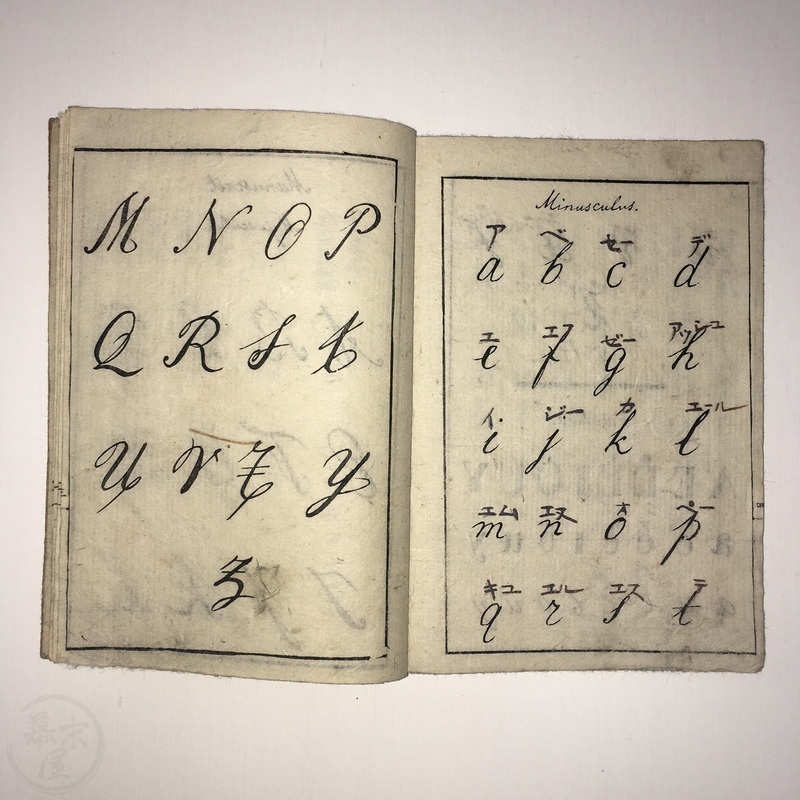 M N O P
Q R S T
U V X Y
Z
Minusculus.
ア ベ セー デ
a b c d
エ エフ ゼー アッシュ
e f g h
イ ジー カ エール
i j k l
エム エヌ オ ペー
m n o p
キユ エル エス テ
q r s t
幕末屋